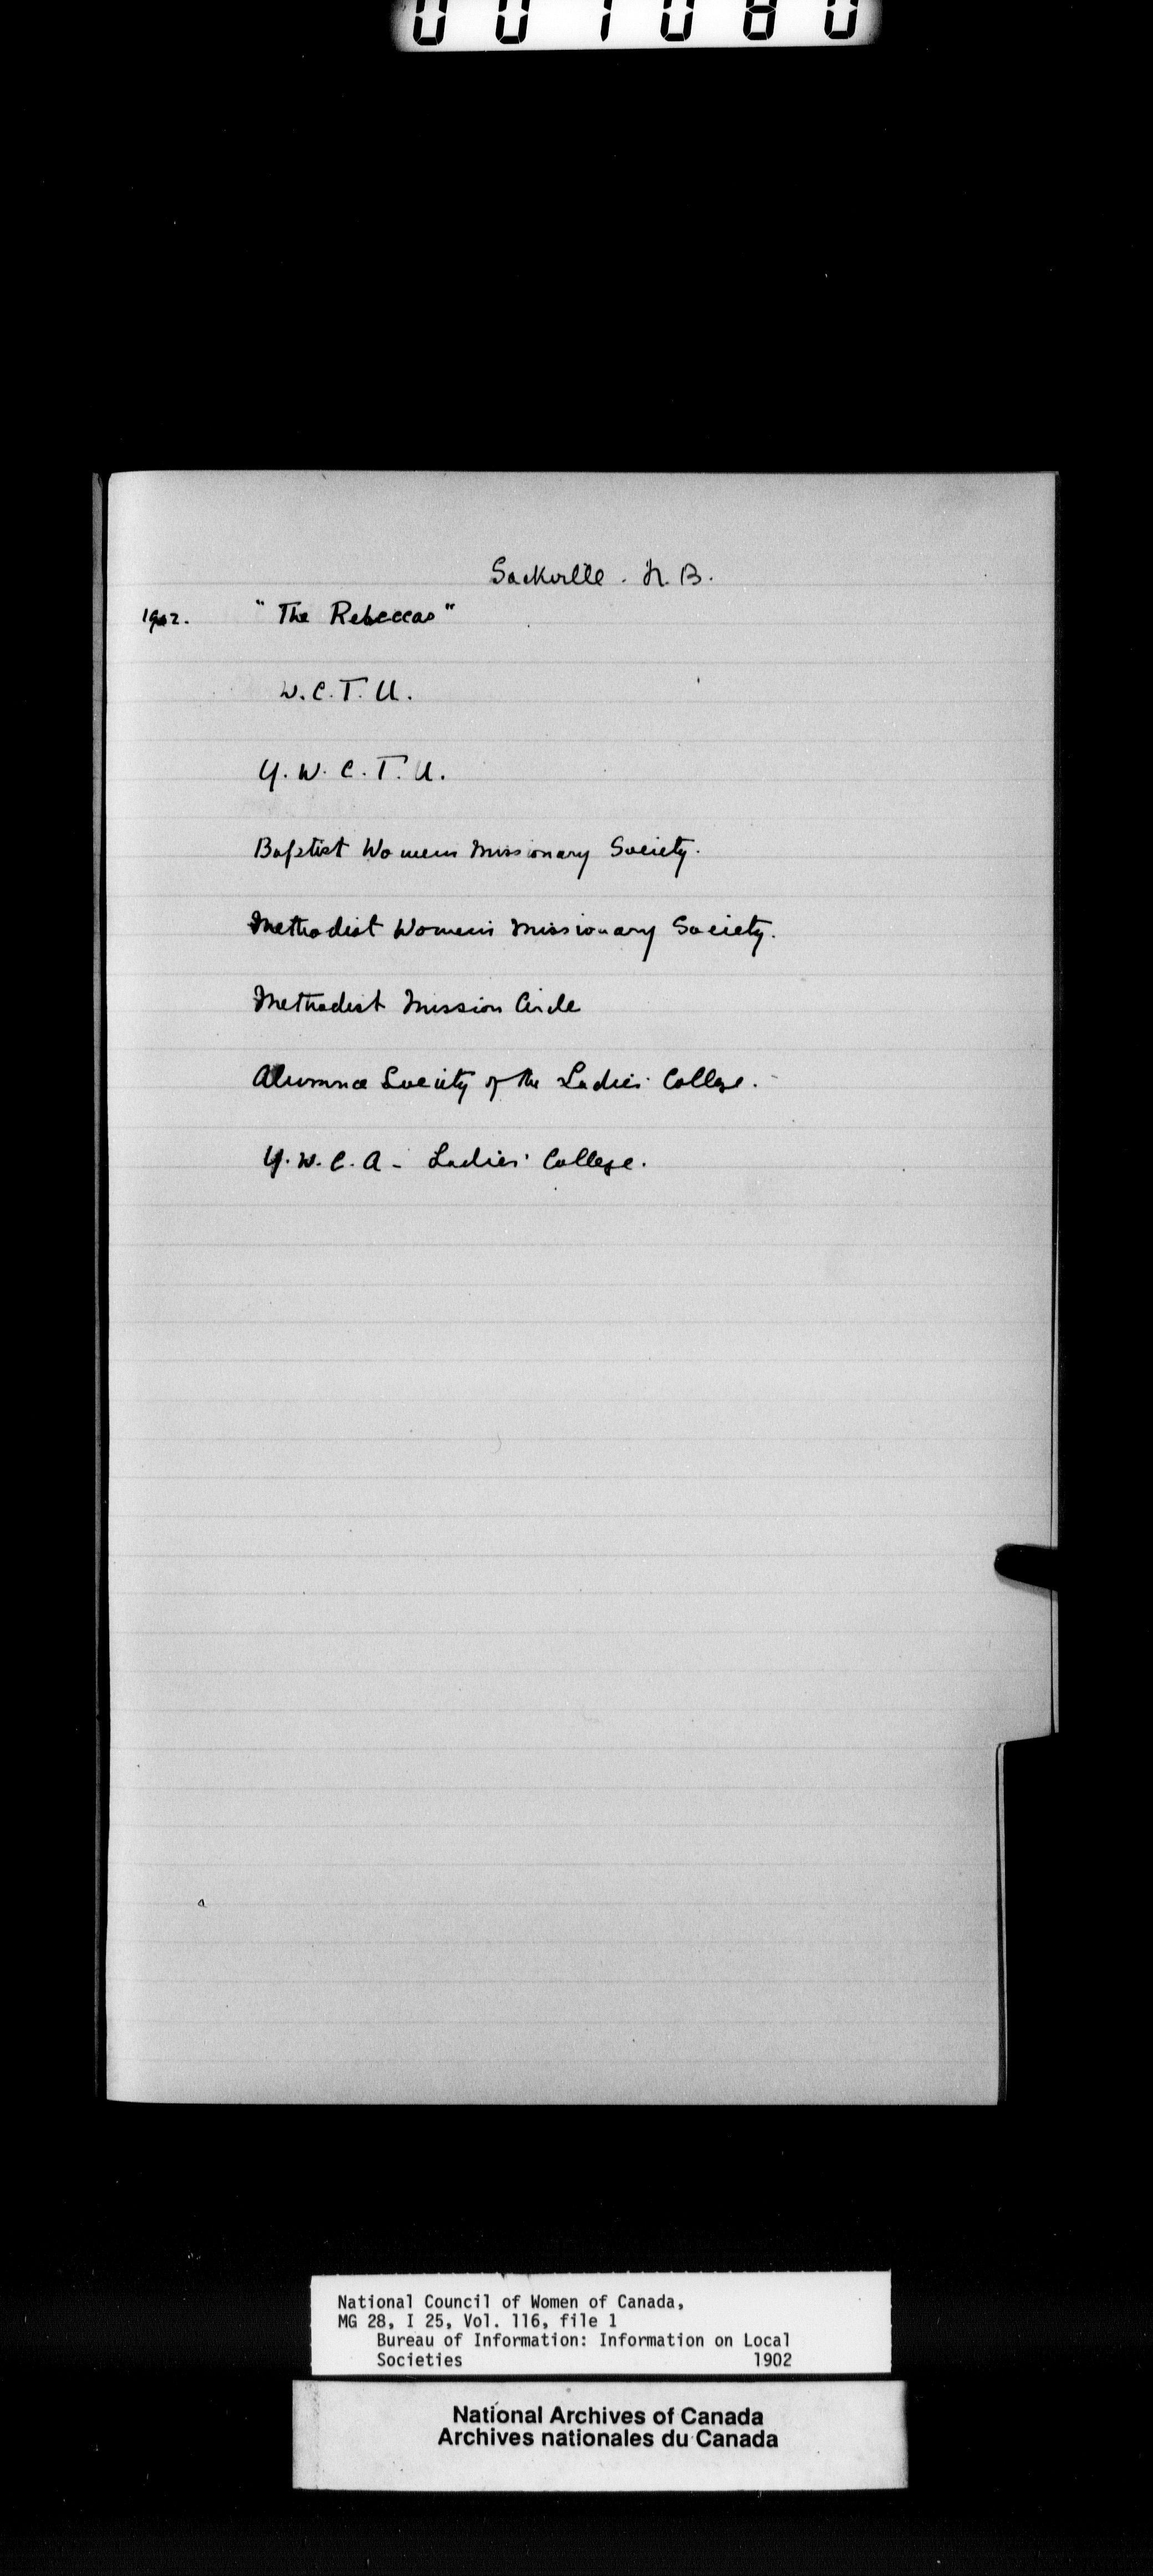 001080
Sackville. N.B.
1902. "The Rebeccas"
W.C.T.U.
Y.W.C.T.U.
Baptist Womens Missionary Society.
Methodist Women's Missionary Society.
Methodist Mission Circle
Alumnae Society of the Ladies' College.
Y.W.C.A - Ladies' College.
National Council of Women of Canada,
MG 28, I 25, Vol. 116, file 1
Bureau of Information: Information on Local
Societies 1902
National Archives of Canada
Archives nationales du Canada